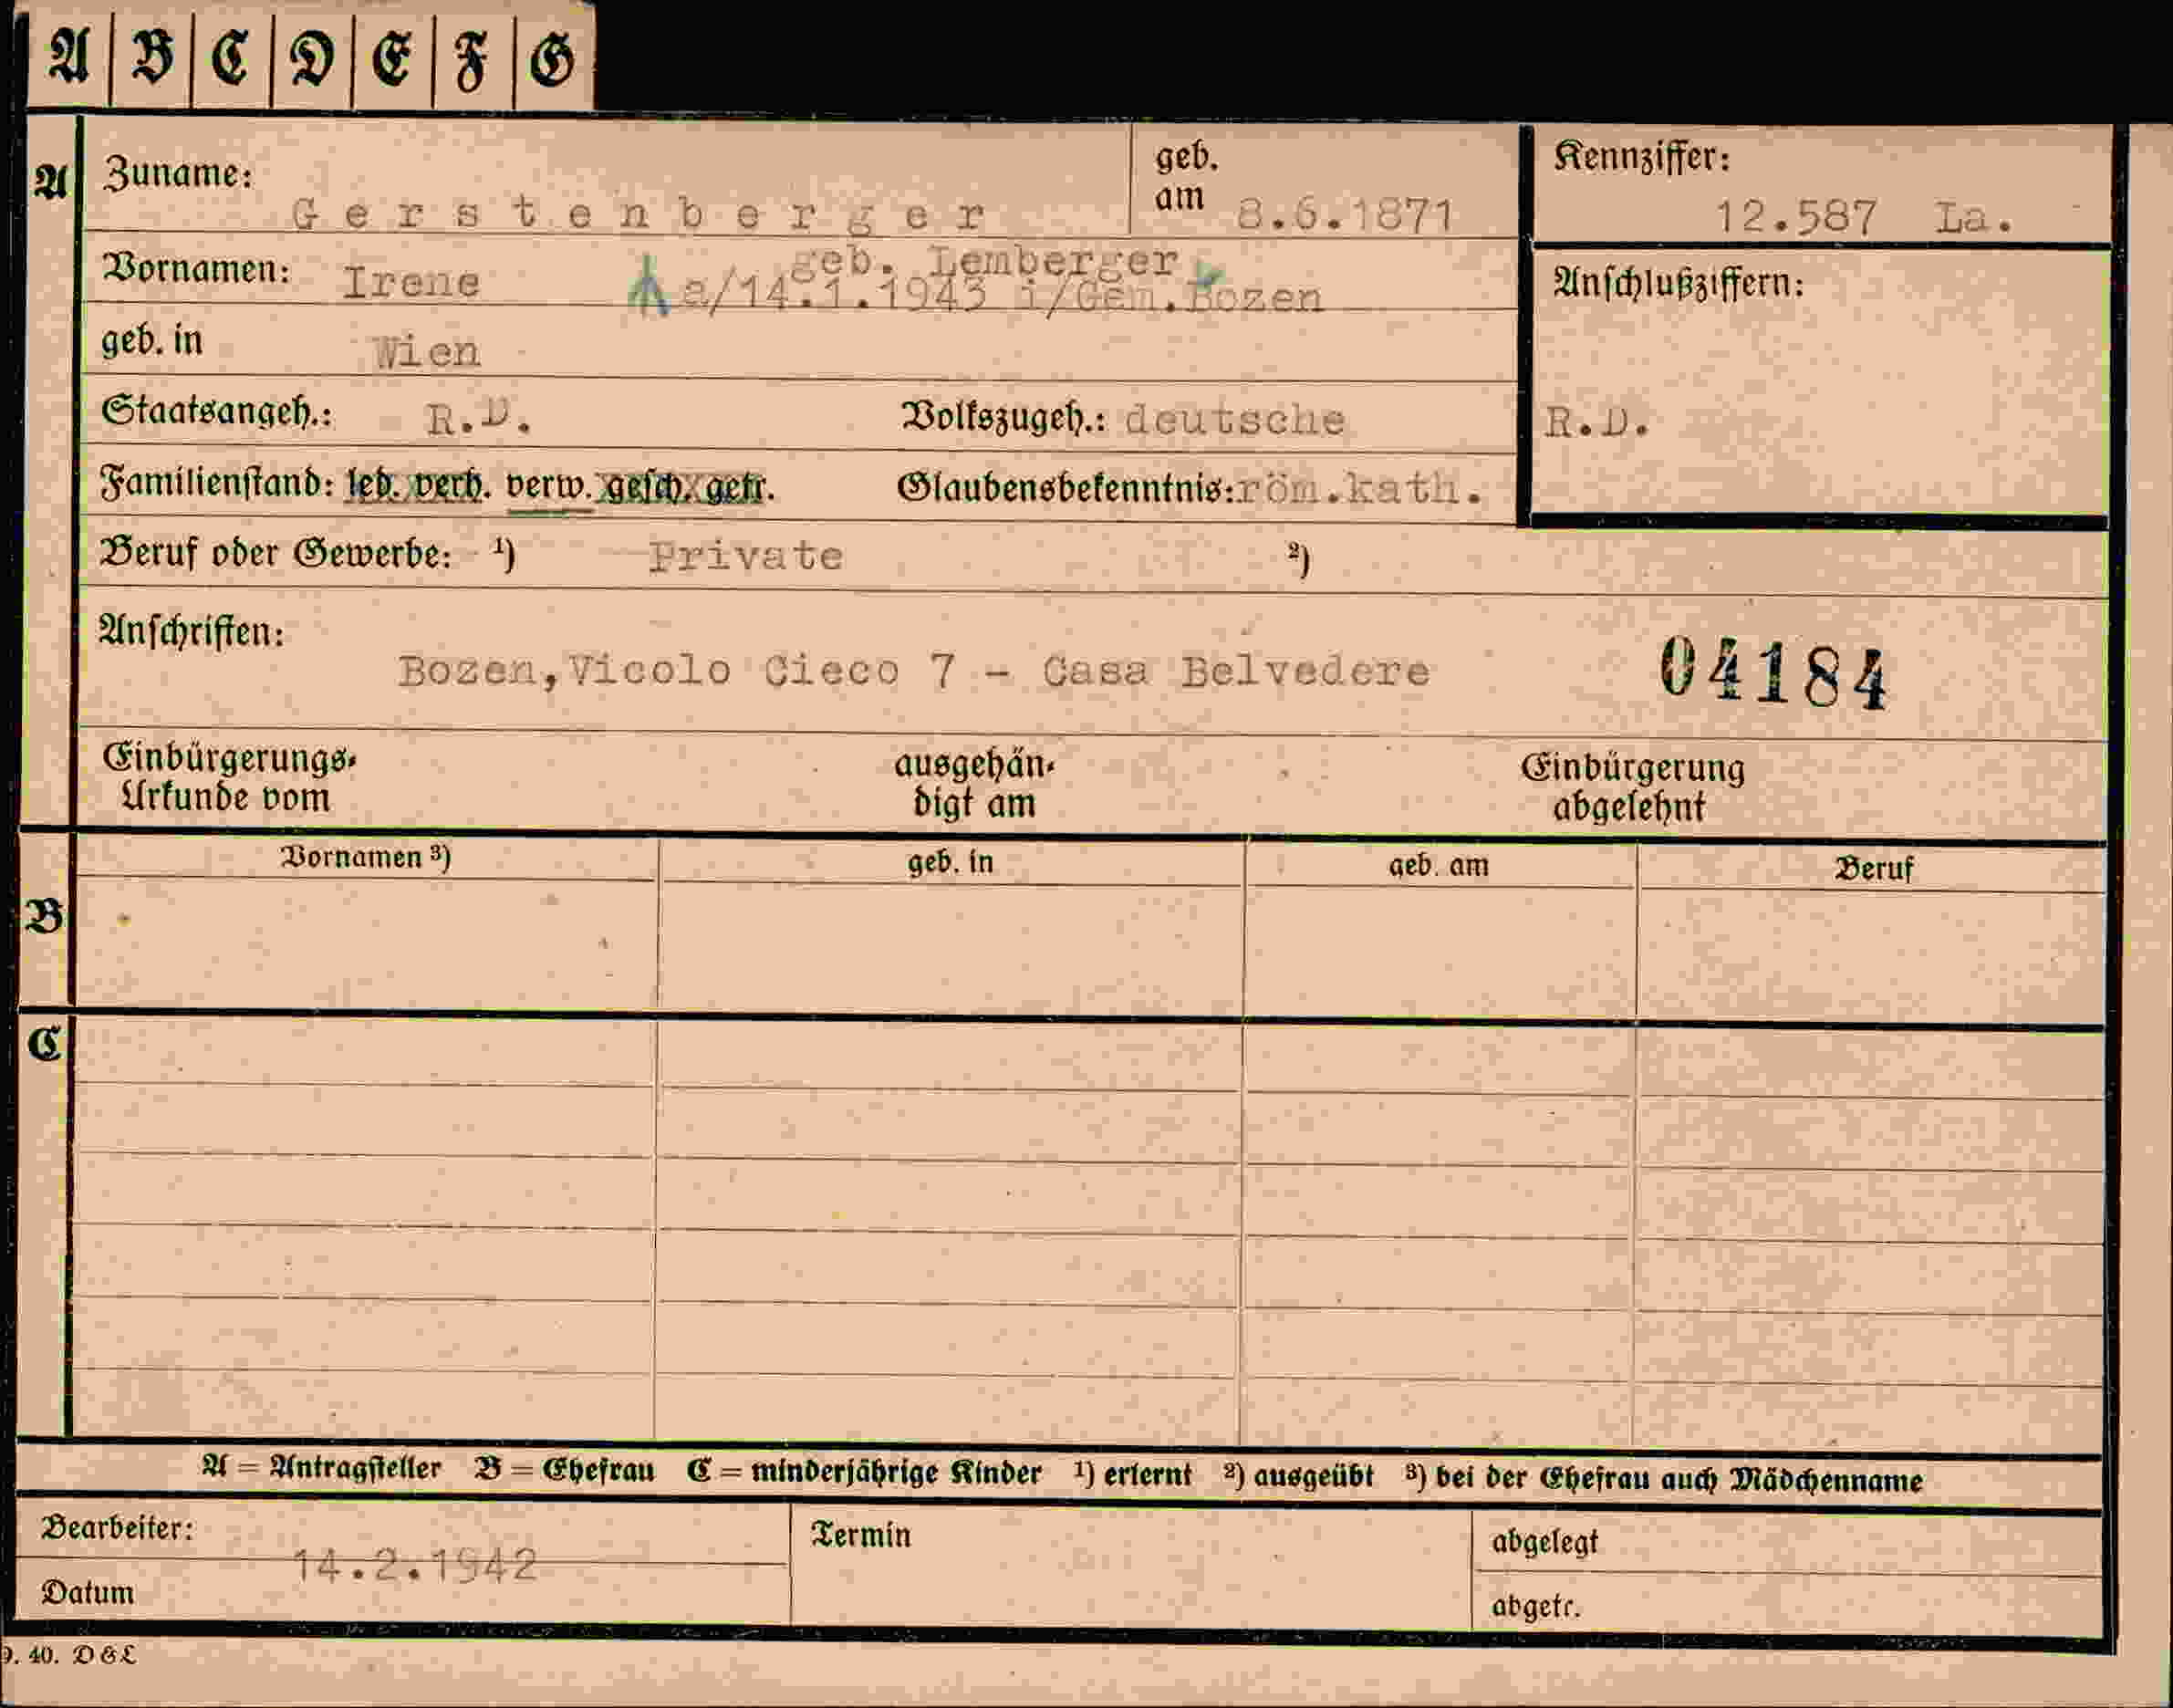 A B C D E F G
A
Zuname: Gerstenberger geb. am 8.6.1871
Kennziffer: 12.587 La.
geb. Lemberger
Vornamen: Irene a/14.1.1943 i/Gem.Bozen
Anschlußziffern:
geb. in Wien
Staatsangeh.: R.D. Volkszugeh.: deutsche R.D.
Familienstand: led. verh. verw. gesch. getr. Glaubensbekenntnis: röm.kath.
Beruf oder Gewerbe: ¹) Private ²)
Anschriften:
Bozen,Vicolo Cieco 7 - Casa Belvedere 04184
Einbürgerungs- ausgehän- Einbürgerung
Urkunde vom digt am abgelehnt
Vornamen ³) geb. in geb. am Beruf
B
C
A = Antragsteller B = Ehefrau C = minderjährige Kinder ¹) erlernt ²) ausgeübt ³) bei der Ehefrau auch Mädchenname
Bearbeiter: Termin abgelegt
14.2.1942
Datum abgetr.
9. 40. D & L